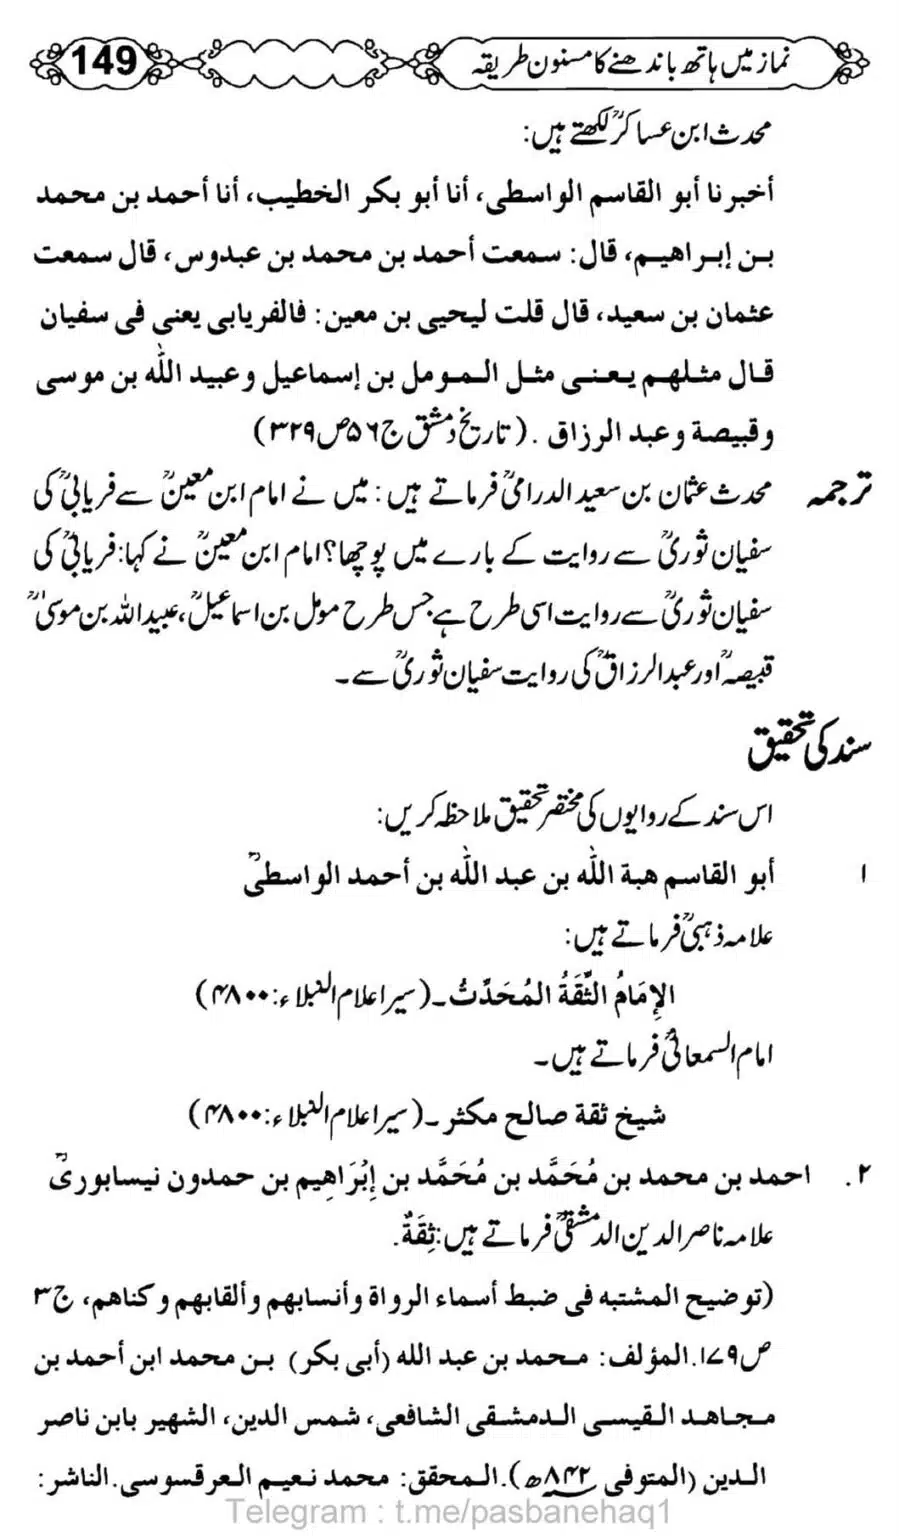 149 نماز میں ہاتھ باندھنے کا مسنون طریقہ
محدث ابن عساکرؒ لکھتے ہیں:
أخبرنا أبو القاسم الواسطى، أنا أبو بكر الخطيب، أنا أحمد بن محمد
بن إبراهيم، قال: سمعت أحمد بن محمد بن عبدوس، قال سمعت
عثمان بن سعيد، قال قلت ليحيى بن معين: فالفريابى يعنى فى سفيان
قال مثلهم يعنى مثل المومل بن إسماعيل وعبيد الله بن موسى
وقبيصة وعبد الرزاق .(تاریخ دمشق ج۵۶ص۳۲۹)
ترجمہ محدث عثمان بن سعید الدرامیؒ فرماتے ہیں: میں نے امام ابن معینؒ سے فریابیؒ کی
سفیان ثوریؒ سے روایت کے بارے میں پوچھا؟ امام ابن معینؒ نے کہا: فریابیؒ کی
سفیان ثوریؒ سے روایت اسی طرح ہے جس طرح مومل بن اسماعیلؒ، عبیداللہ بن موسیٰؒ
قبیصہؒ اور عبدالرزاقؒ کی روایت سفیان ثوریؒ سے۔
سند کی تحقیق
اس سند کے راویوں کی مختصر تحقیق ملاحظہ کریں:
۱ أبو القاسم هبة الله بن عبد الله بن أحمد الواسطىؒ
علامہ ذہبیؒ فرماتے ہیں:
الإِمَامُ الثِّقَةُ المُحَدِّثُ۔(سیر اعلام النبلاء:۴۸۰۰)
امام السمعانیؒ فرماتے ہیں۔
شیخ ثقة صالح مکثر۔(سیر اعلام النبلاء:۴۸۰۰)
۲. احمد بن محمد بن مُحَمَّد بن مُحَمَّد بن إِبْرَاهِيم بن حمدون نيسابورىؒ
علامہ ناصر الدین الدمشقیؒ فرماتے ہیں: ثِقَةٌ.
(توضيح المشتبه فى ضبط أسماء الرواة وأنسابهم وألقابهم وكناهم، ج۳
ص۱۷۹.المؤلف: محمد بن عبد الله (أبى بكر) بن محمد ابن أحمد بن
مجاهد القيسى الدمشقى الشافعى، شمس الدين، الشهير بابن ناصر
الدين (المتوفى ۸۴۲ھ).المحقق: محمد نعيم العرقسوسى.الناشر:
Telegram : t.me/pasbanehaq1